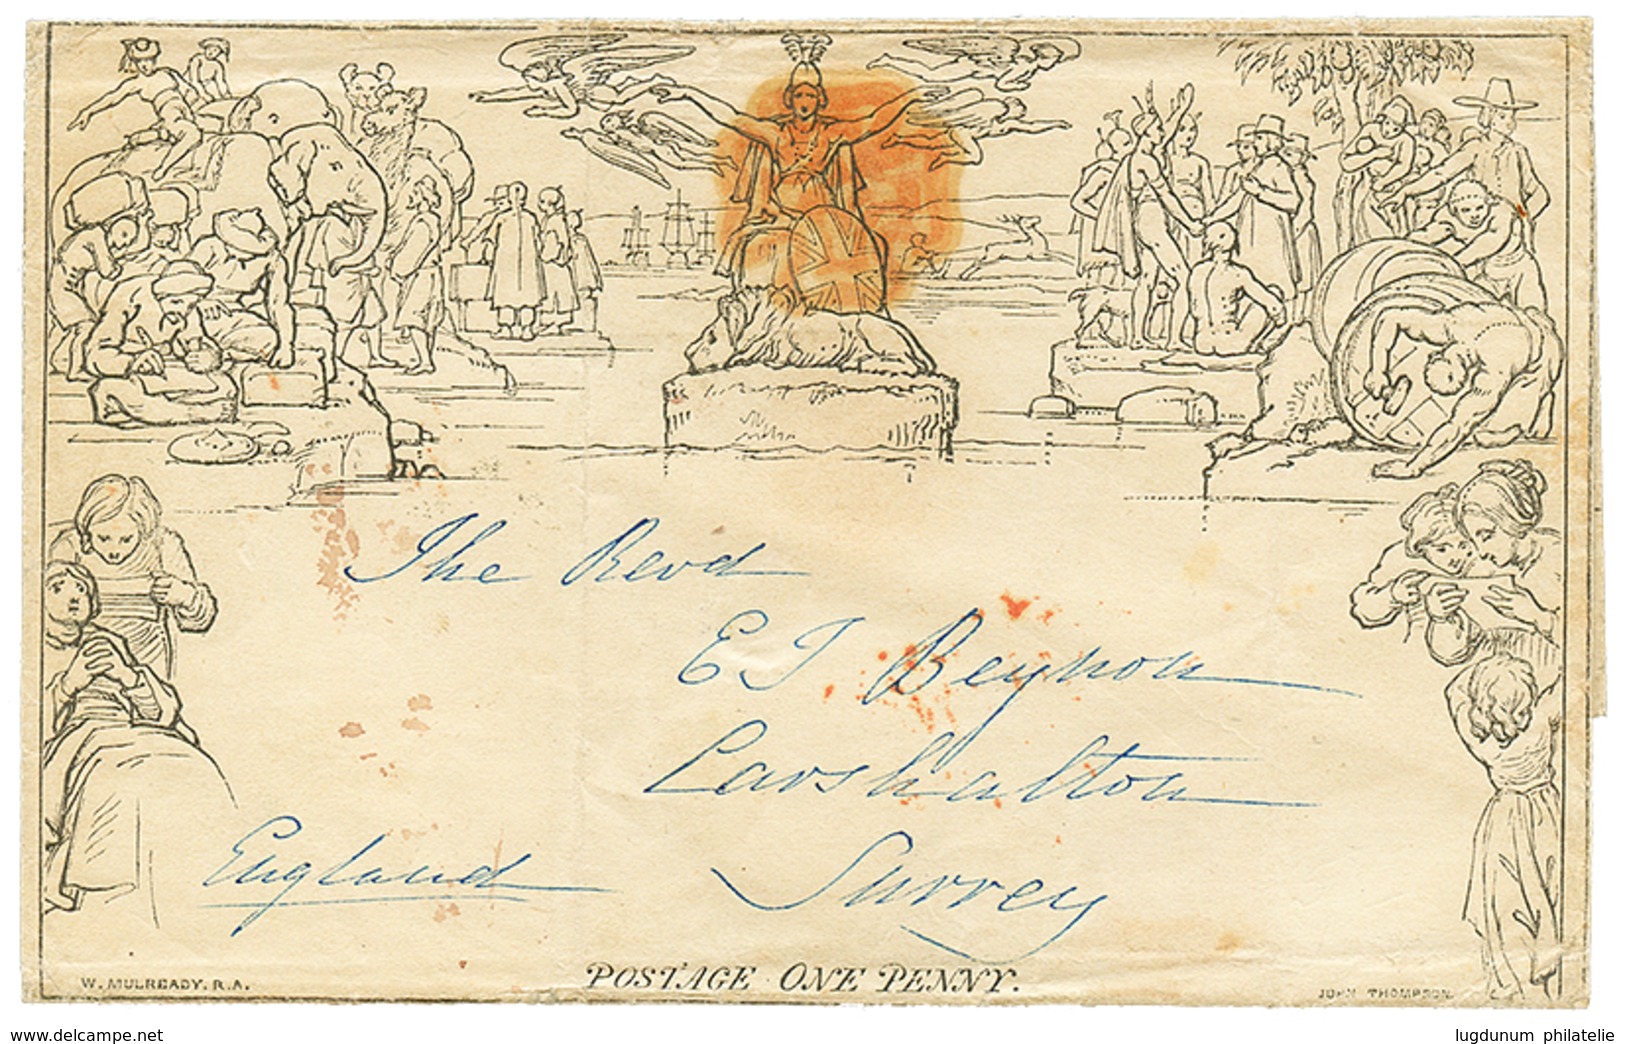 The Revd
E J Beynon
Carshalton
Surrey
England
W. MULREADY. R.A.
POSTAGE ONE PENNY.
JOHN THOMPSON
www.delcampe.net
lugdunum philatelie